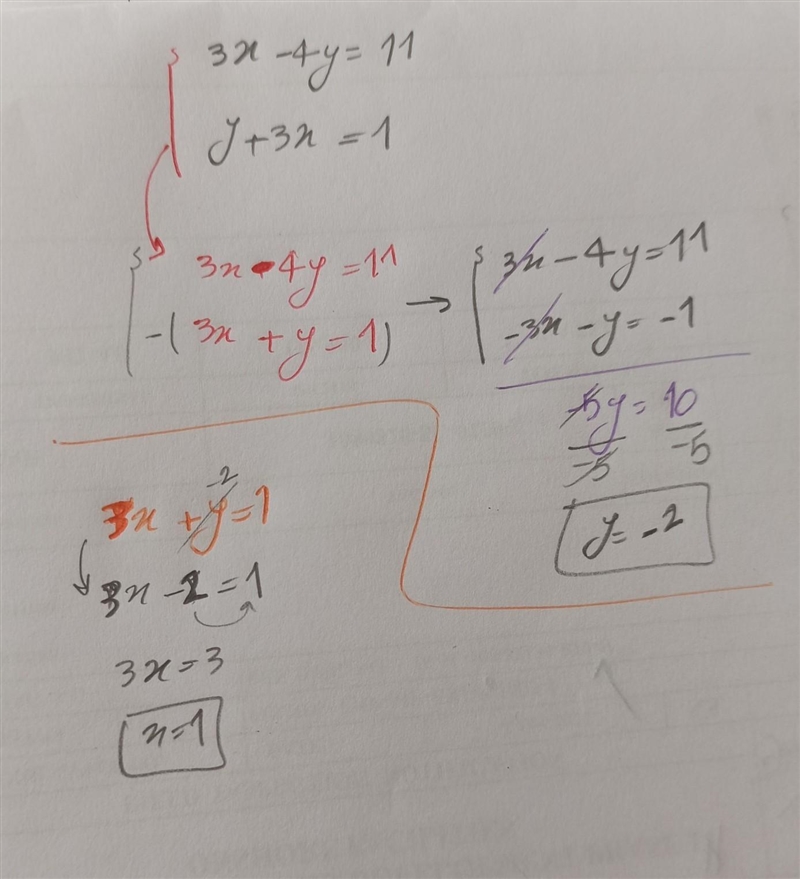 3x - 4y = 11
y + 3x = 1
3x - 4y = 11
-( 3x + y = 1 )
→
3x - 4y = 11
-3x - y = -1
-5y = 10
-5 -5
y = -2
-2
3x + y = 1
3x - 2 = 1
3x = 3
x = 1